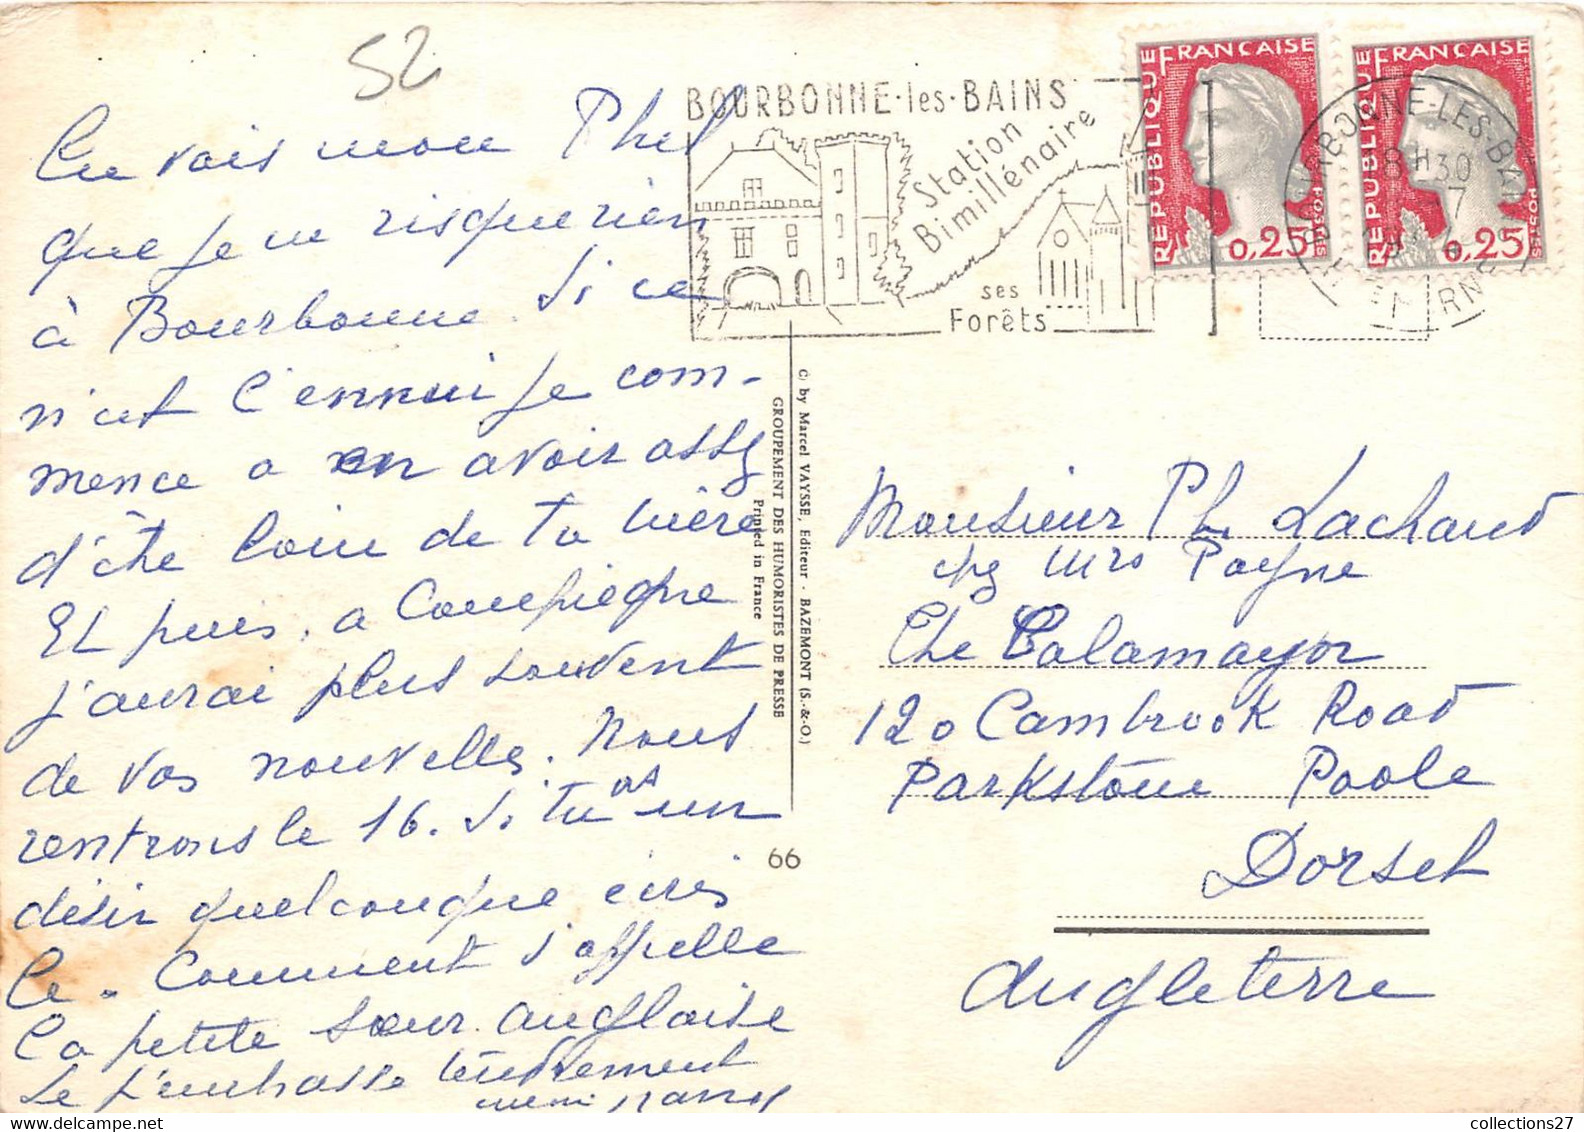 52
Tu vois mon Phil
que je ne risque rien
à Bourbonne. Si ce
n'est l'ennui je com-
mence a en avoir assez
d'être loin de ta mère
Et puis, a Compiègne
j'aurai plus souvent
de vos nouvelles. Nous
rentrons le 16. Si tu as un
désir quelconque écris
le. Comment s'appelle
la petite sœur anglaise
Je t'embrasse tendrement
BOURBONNE-les-BAINS
Station
Bimillénaire
ses
Forêts
REPUBLIQUE FRANÇAISE
0,25
POSTES
REPUBLIQUE FRANÇAISE
0,25
POSTES
8H30
C) by Marcel VAYSSE, Editeur - BAZEMONT (S.-&-O.)
GROUPEMENT DES HUMORISTES DE PRESSE
Printed in France
66
Monsieur Ph. Lachaud
chez Mrs Payne
The Calamayor
120 Cambrook Road
Parkstone Poole
Dorset
Angleterre
collections27